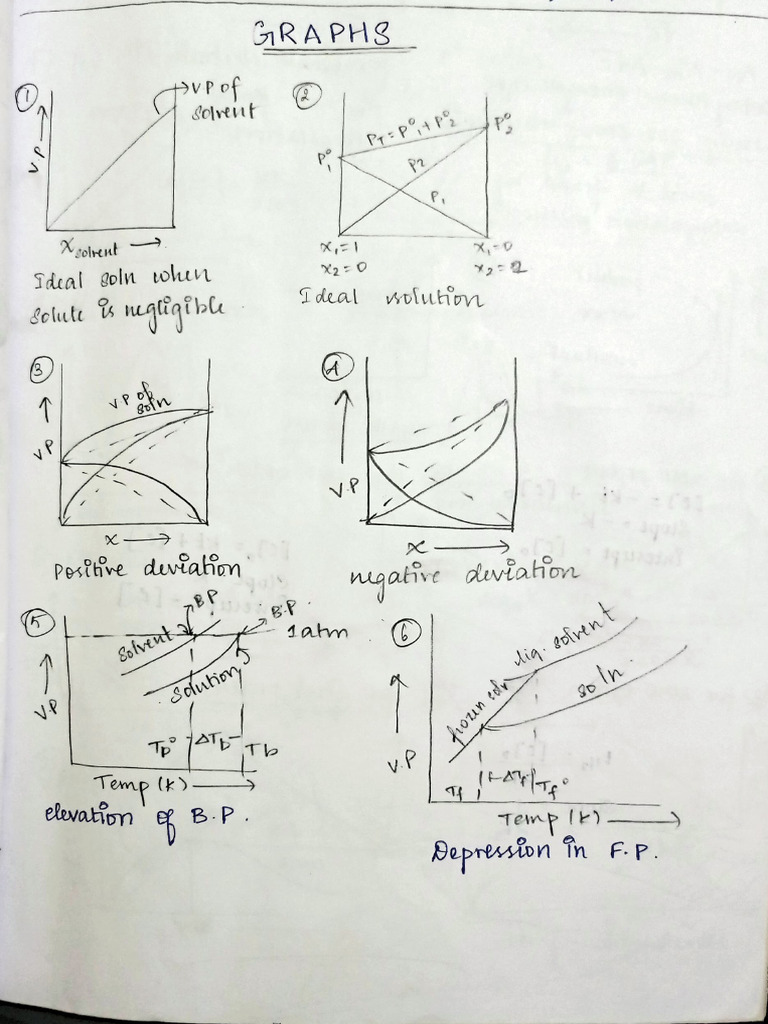 GRAPHS
① VP of
solvent
VP
x solvent
Ideal soln when
solute is negligible.
②
PT = P°1 + P°2
P°1
P°2
P2
P1
x1=1 x1=0
x2=0 x2=1
Ideal solution
③
VP of
soln
VP
x
Positive deviation
④
V.P
x
negative deviation
⑤
B.P
B.P
1 atm
Solvent
solution
VP
Tb° ΔTb Tb
Temp (K)
elevation of B.P.
⑥
liq. solvent
frozen soln
soln.
V.P
Tf ΔTf Tf°
Temp (K)
Depression in F.P.